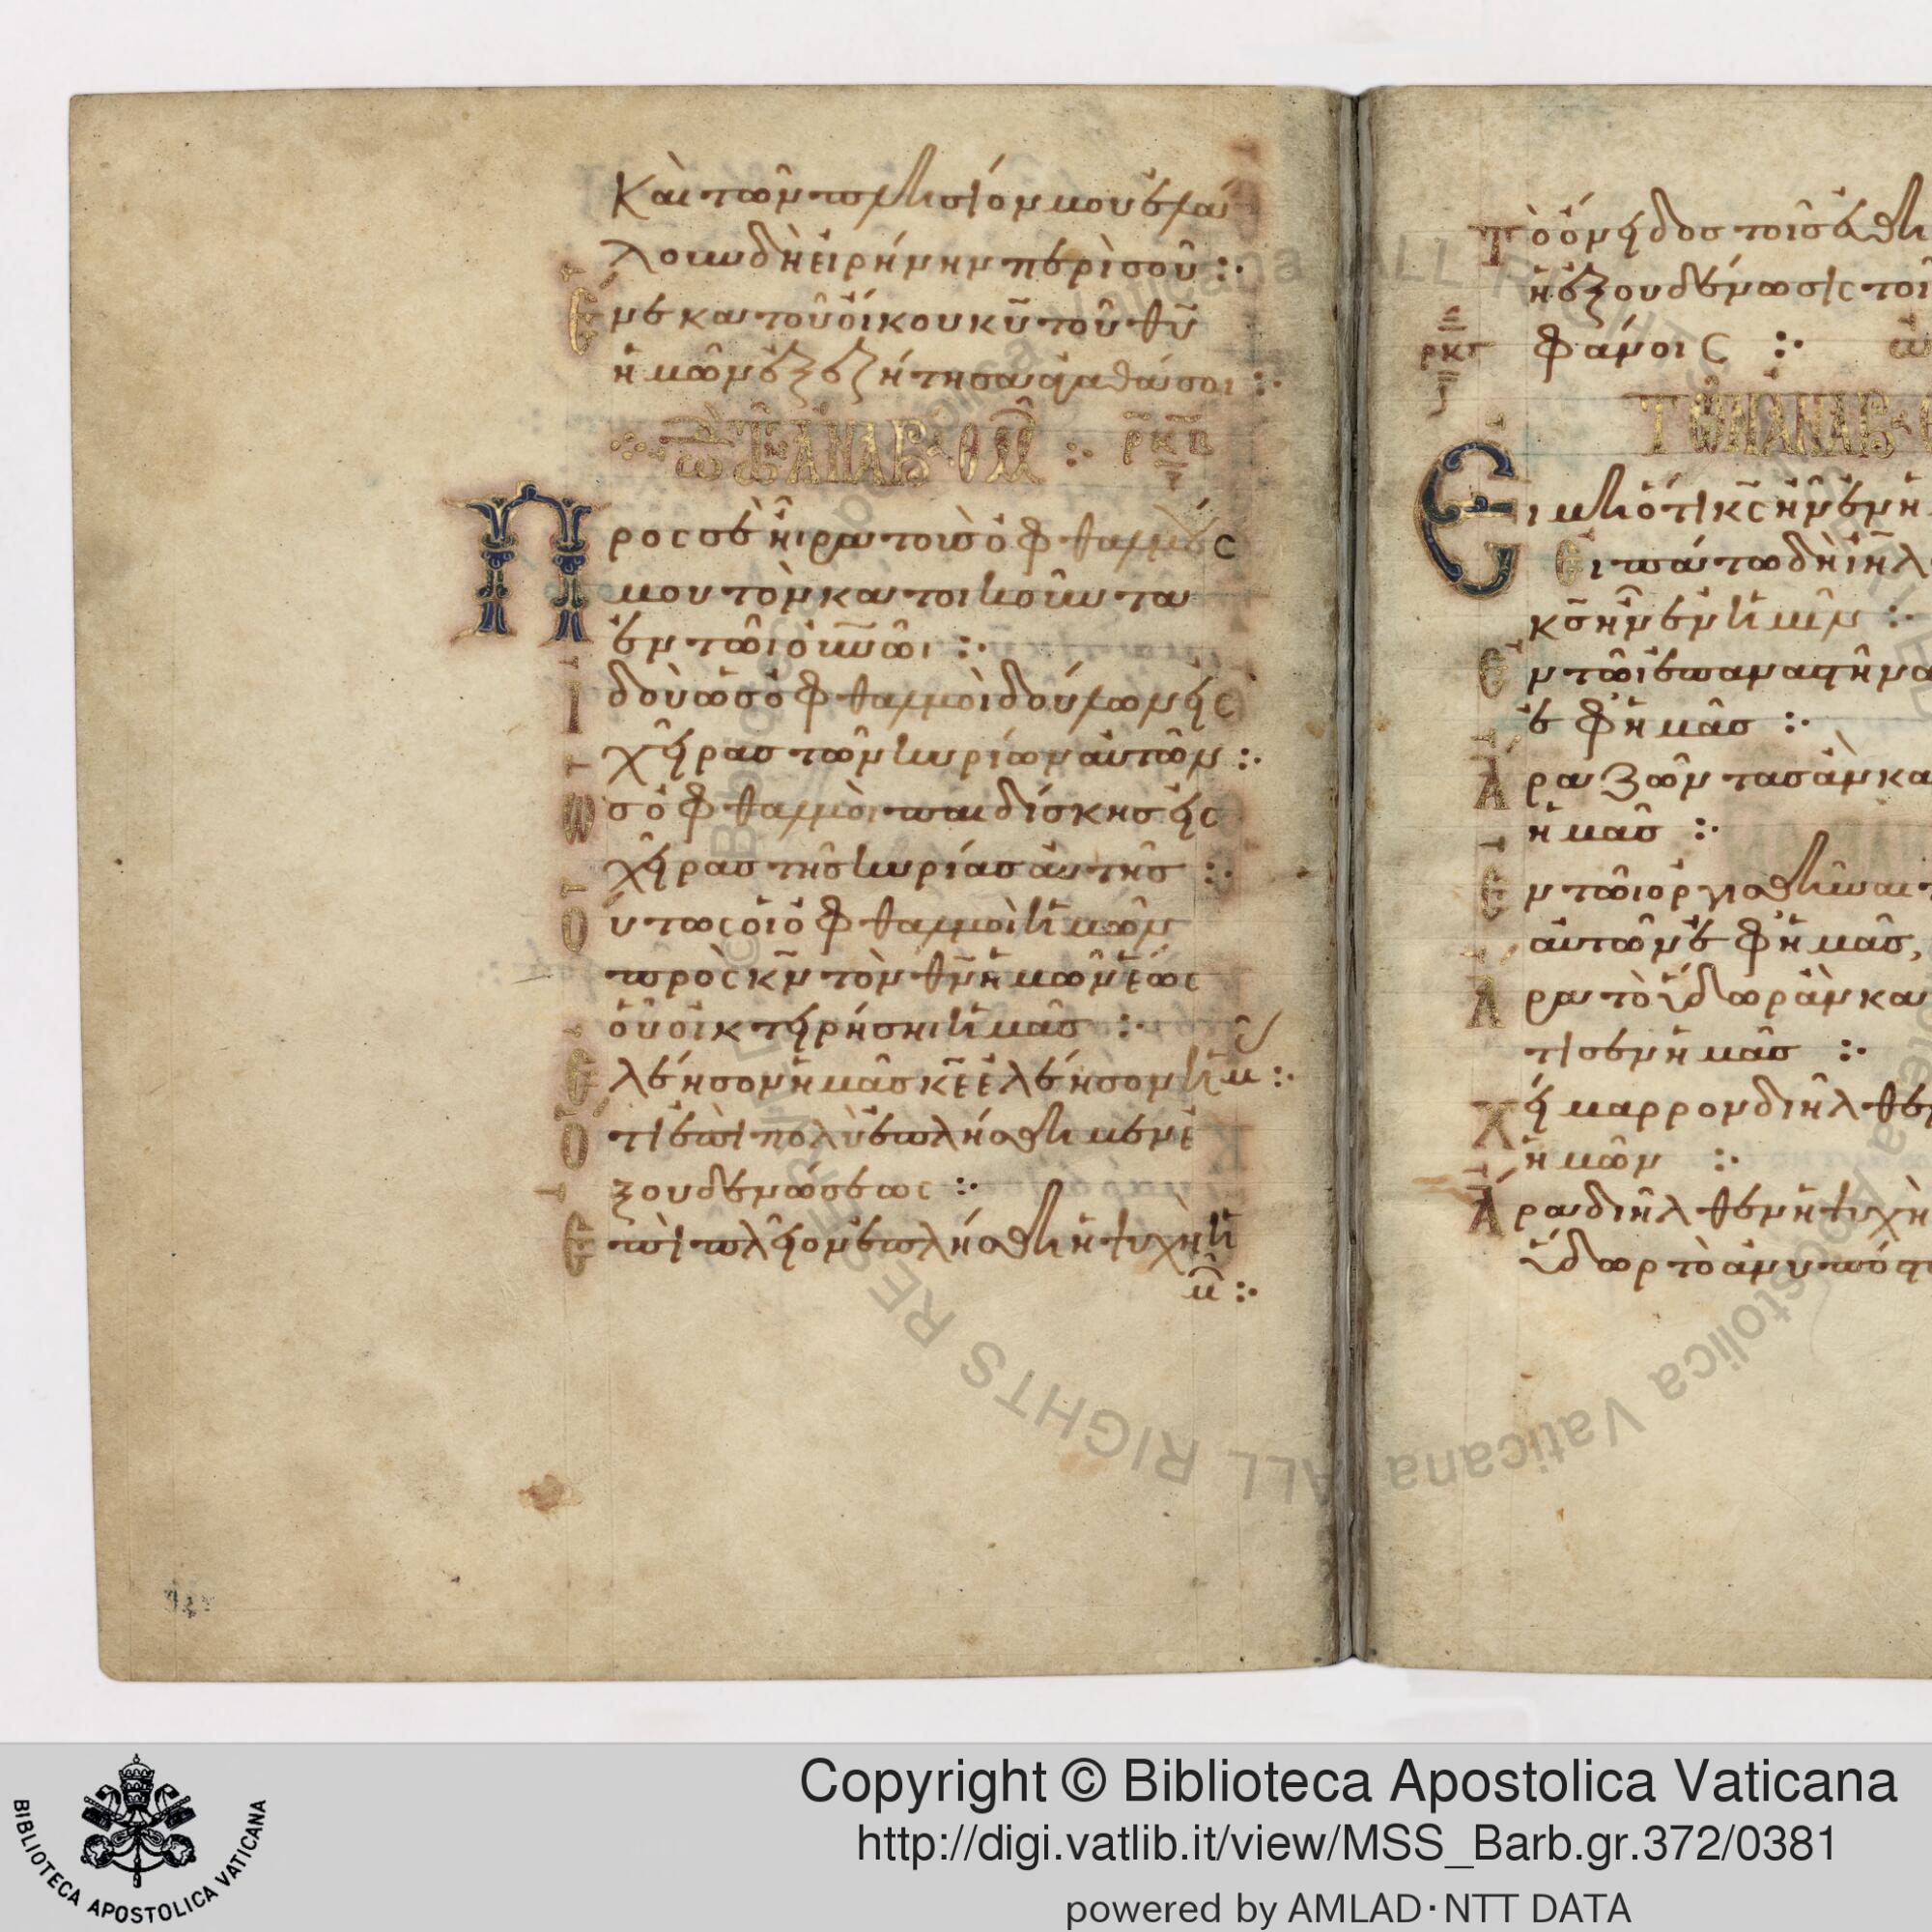 Καὶ τῶν πλησίον μου ἐλά
λουν δὴ εἰρήνην περὶ σοῦ :·
Ἕνεκα τοῦ οἴκου κ̅υ̅ τοῦ θ̅υ̅
ἡμῶν ἐξεζήτησα ἀγαθά σοι :·
ὠδὴ ἀναβαθμ :· ρκβ
Πρὸς σὲ ἦρα τοὺς ὀφθαλμούς
μου τὸν κατοικοῦντα
ἐν τῶι ὀυ̅ν̅ῶι :·
Ἰδοὺ ὡς ὀφθαλμοὶ δούλων εἰς
χεῖρας τῶν κυρίων αὐτῶν :·
Ὡς ὀφθαλμοὶ παιδίσκης εἰς
χεῖρας τῆς κυρίας αὐτῆς :·
Οὕτως οἱ ὀφθαλμοὶ ἡμῶν
πρὸς κ̅ν̅ τὸν θ̅ν̅ ἡμῶν ἕως
οὗ οἰκτειρήσηι ἡμᾶς :·
Ἐλέησον ἡμᾶς κ̅ε̅ ἐλέησον ἡμᾶς :·
Ὅτι ἐπὶ πολὺ ἐπλήσθημεν ἐ
ξουδενώσεως :·
Ἐπὶ πλεῖον ἐπλήσθη ἡ ψυχὴ ἡ
μῶν :·
Τὸ ὄνειδος τοῖς εὐθη
ἡ ἐξουδένωσις τοῖ
ρκγ φάνοις :·
ΤΩΝ ΑΝΑΒ
Εἰ μὴ ὅτι κ̅ς̅ ἦν ἐν ἡ
Εἰπάτω δὴ ἰ̅η̅λ̅
κ̅ς̅ ἦν ἐν ἡμῖν :·
Ἐν τῶι ἐπαναστῆνα
ἐφ ἡμᾶς :·
Ἄρα ζῶντας ἂν κα
ἡμᾶς :·
Ἐν τῶι ὀργισθῆναι τ
αὐτῶν ἐφ ἡμᾶς,
Ἄρα τὸ ὕδωρ ἂν κα
τισεν ἡμᾶς :·
Χείμαρρον διῆλθεν
ἡμῶν :·
Ἄρα διῆλθεν ἡ ψυχὴ
ὕδωρ τὸ ἀνυπόστ
BIBLIOTECA APOSTOLICA VATICANA
Copyright © Biblioteca Apostolica Vaticana
http://digi.vatlib.it/view/MSS_Barb.gr.372/0381
powered by AMLAD·NTT DATA